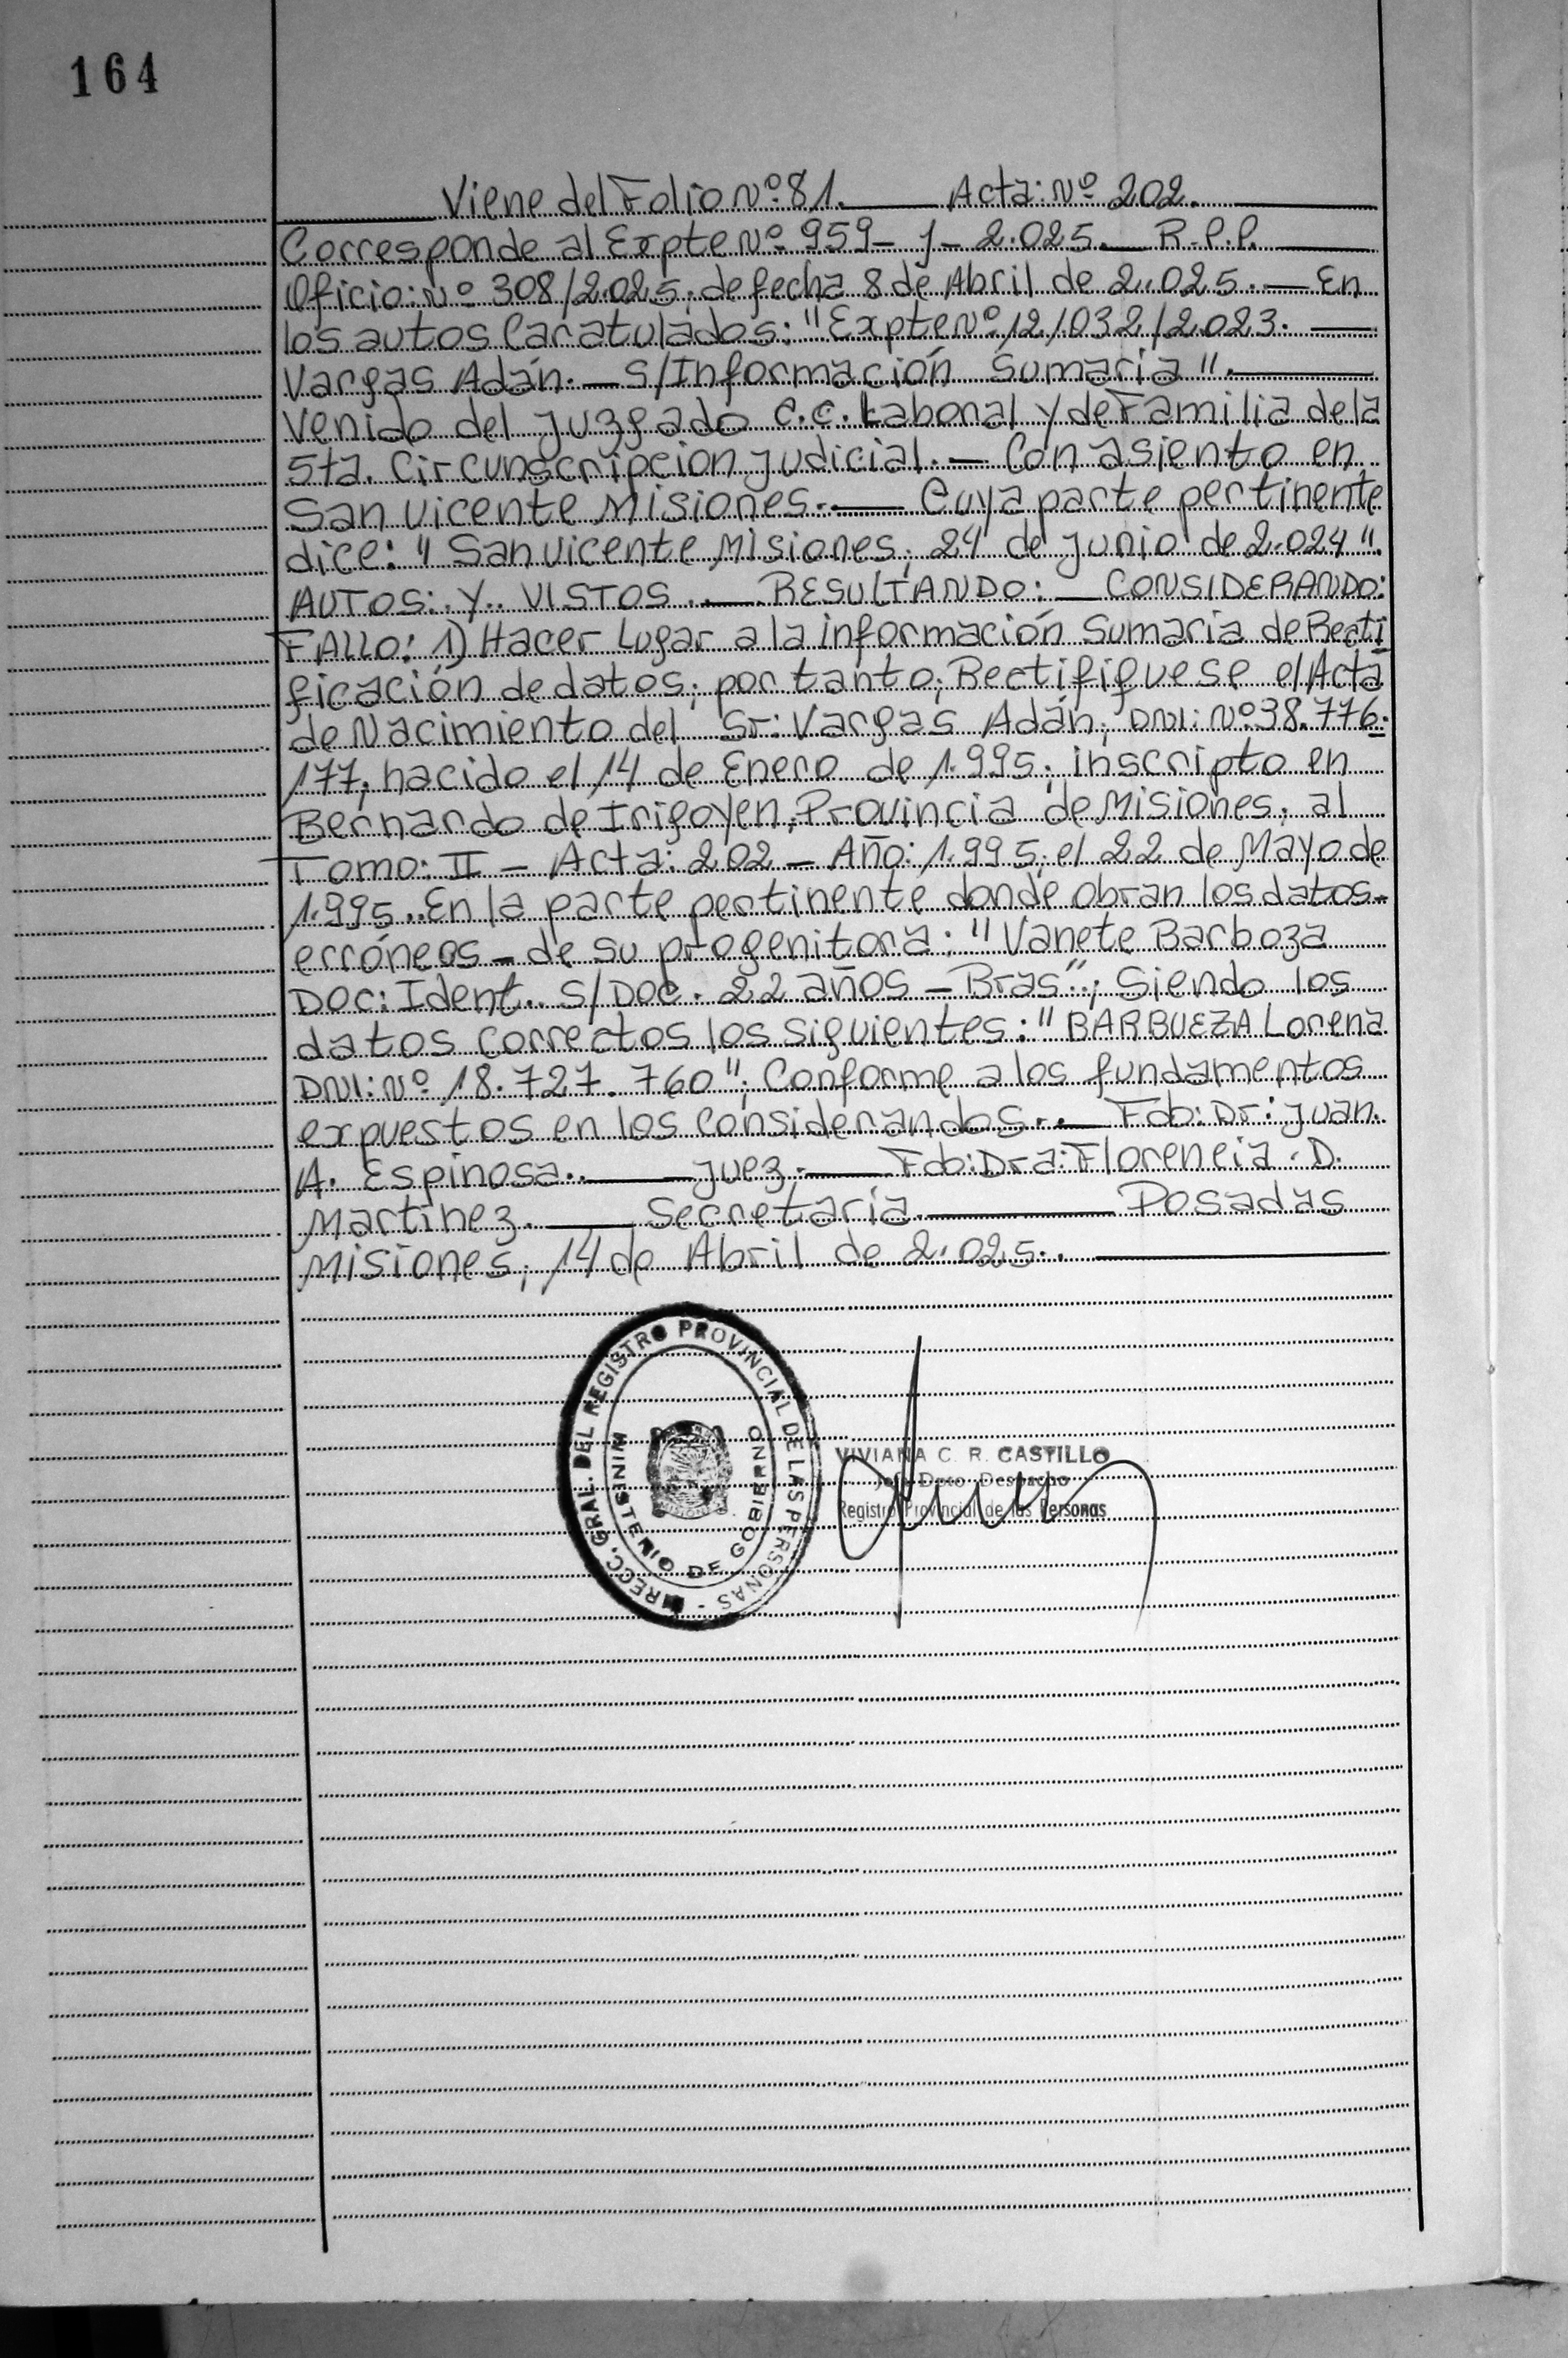 164
Viene del Folio Nº 81. Acta: Nº 202.
Corresponde al Expte Nº 959- J- 2.025. R.P.P.
Oficio: Nº 308/2.025; de fecha 8 de Abril de 2.025. — En
los autos Caratulados: "Expte Nº 12.032/2.023. —
Vargas Adán. — S/Información Sumaria". —
Venido del Juzgado C.C. Laboral y de Familia de la
5ta. Circunscripcion Judicial. — Con asiento en
San Vicente Misiones. — Cuya parte pertinente
dice: " San Vicente Misiones; 24 de Junio de 2.024".
AUTOS: Y VISTOS. — RESULTANDO: — CONSIDERANDO:
FALLO: 1) Hacer Lugar a la información Sumaria de Recti
ficación de datos; por tanto; Rectifiquese el Acta
de Nacimiento del Sr: Vargas Adán; DNI: Nº 38.776.
177; nacido el 14 de Enero de 1.995; inscripto en
Bernardo de Irigoyen; Provincia de Misiones; al
Tomo: II — Acta: 202 — Año: 1.995; el 22 de Mayo de
1.995.. En la parte pertinente donde obran los datos-
erróneos - de su progenitora: "Vanete Barboza
Doc: Ident. S/Doc. 22 años — Bras"; Siendo los
datos correctos los siguientes: "BARBUEZA Lorena
DNI: Nº 18.727.760"; Conforme a los fundamentos
expuestos en los considerandos.. — Fdo: Dr: Juan.
A. Espinosa. — Juez. — Fdo: Dra: Florencia. D.
Martinez. — Secretaria. — Posadas
Misiones; 14 de Abril de 2.025.. —
DIRECC. GRAL. DEL REGISTRO PROVINCIAL DE LAS PERSONAS -
MINISTERIO DE GOBIERNO
VIVIANA C. R. CASTILLO
Jefe Dpto. Despacho
Registro Provincial de las Personas